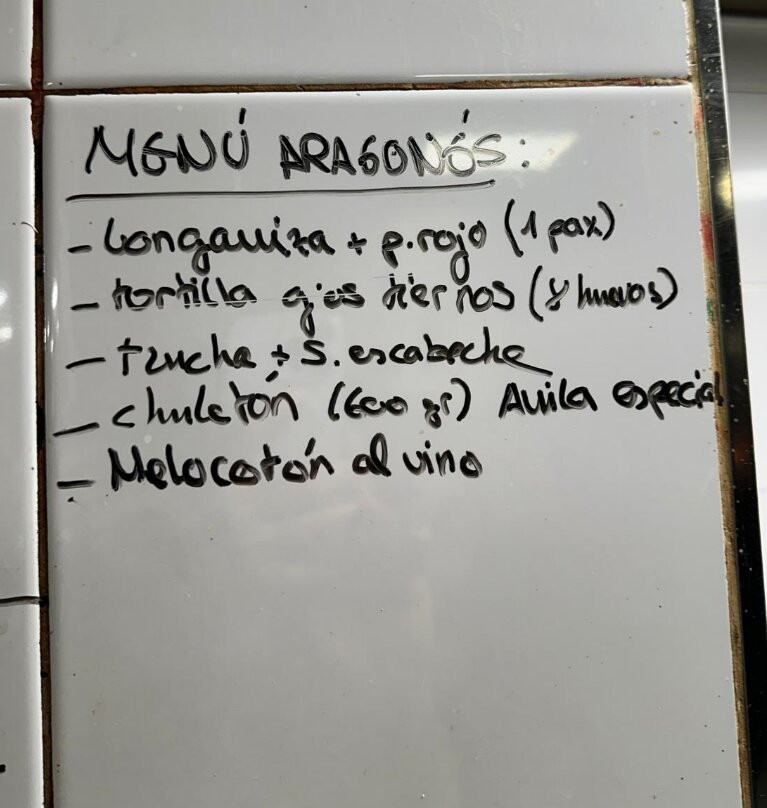 MENÚ ARAGONÉS:
- Longaniza + p.rojo (1 pax)
- tortilla ajos tiernos (8 huevos)
- trucha + S. escabeche
- chuletón (600 gr) Avila especial
- Melocotón al vino